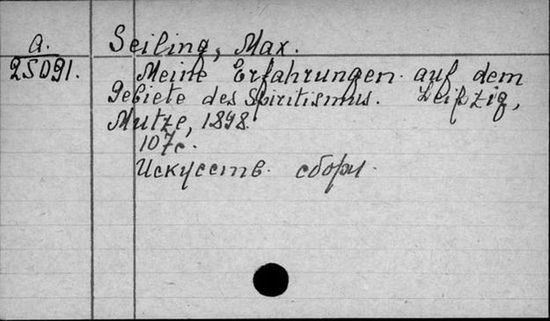 A.
25091.
Seiling, Max.
Meine Erfahrungen auf dem
Gebiete des Spiritismus. Leipzig,
Mutze, 1898.
107с.
Искусств. сборн.